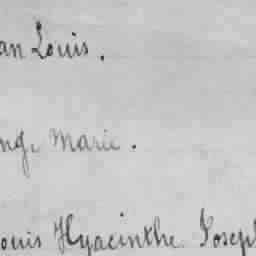 an Louis.
ng, Marie.
ouis Hyacinthe Josep